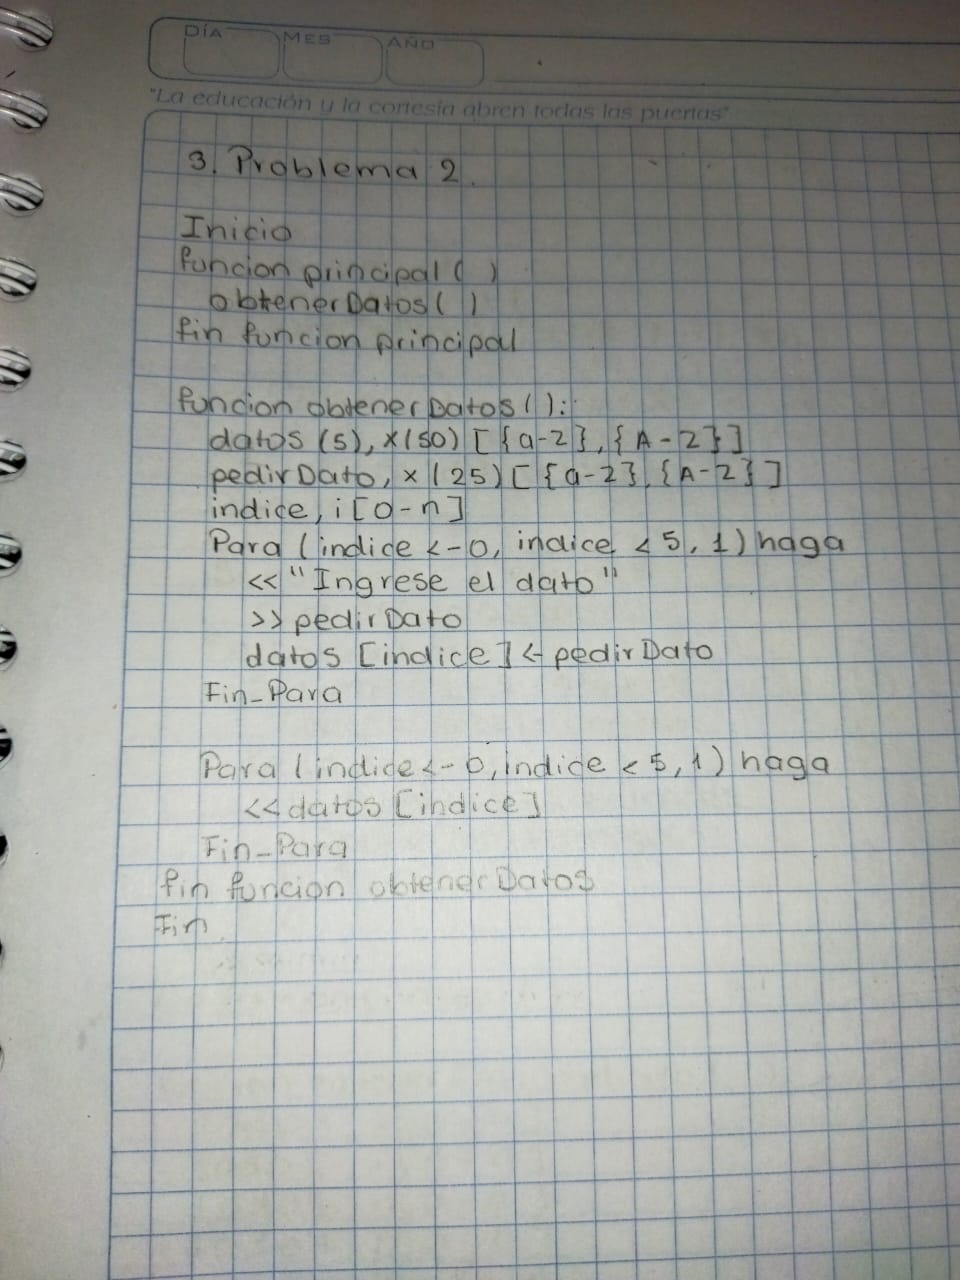 DÍA MES AÑO
"La educación y la cortesía abren todas las puertas"
3. Problema 2.
Inicio
funcion principal ( )
obtenerDatos( )
fin funcion principal
funcion obtenerDatos ( ):
datos (5), x(50) [ {a-z}, {A-Z} ]
pedirDato, x (25) [ {a-z}, {A-Z} ]
indice, i [0-n]
Para ( indice <-0, indice < 5, 1) haga
<< "Ingrese el dato"
>> pedirDato
datos [indice] <- pedirDato
Fin_Para
Para ( indice <- 0, indice < 5, 1) haga
<< datos [indice]
Fin_Para
fin funcion obtenerDatos
Fin